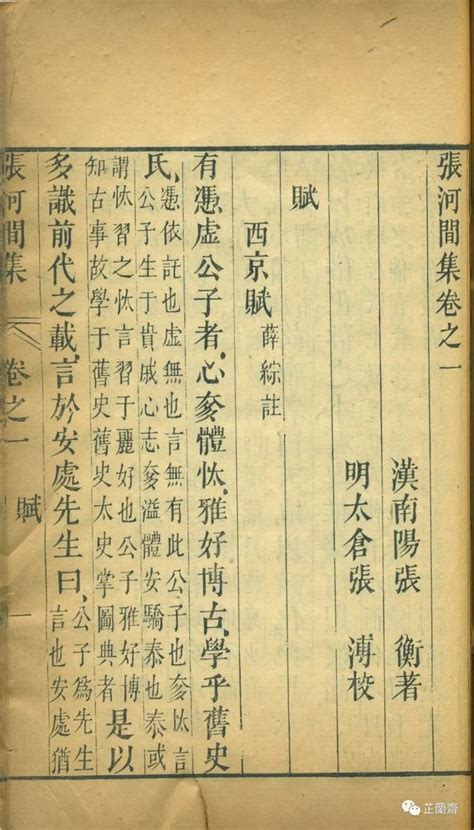 張河間集卷之一
漢南陽張　衡著
明太倉張　溥校
賦
西京賦 薛綜註
有憑虛公子者，心奓體忲，雅好博古，學乎舊史
氏，憑依託也虛無也言無有此公子也奓忲言
公子生于貴戚心志奓溢體安驕泰也泰或
謂忲習之忲言習于麗好也公子雅好博
知古事故學于舊史舊史太史掌圖典者 是以
多識前代之載，言於安處先生曰，公子為先生
言也安處猶
張河間集　卷之一　賦　一
芷蘭齋